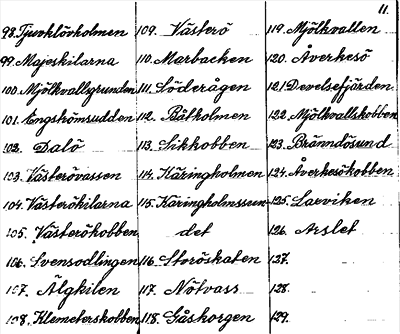 11.
98. Tjurklösholmen
99. Majeskilarna
100. Mjölkvallsgrunden
101. Engströmsudden
102. Dalö
103. Västerövassen
104. Västerökilarna
105. Västerökobben
106. Svensodlingen
107. Älgkilen
108. Klemeterskobben
109. Västerö
110. Marbacken
111. Söderågen
112. Båtholmen
113. Sikkobben
114. Käringholmen
115. Käringholmssun
det
116. Storöskaten
117. Nötvass
118. Gåskorgen
119. Mjölkvallen
120. Åverkesö
121. Develsefjärden
122. Mjölkvallskobben
123. Bränndösund
124. Åverkesökobben
125. Larviken
126. Arslet
127.
128.
129.